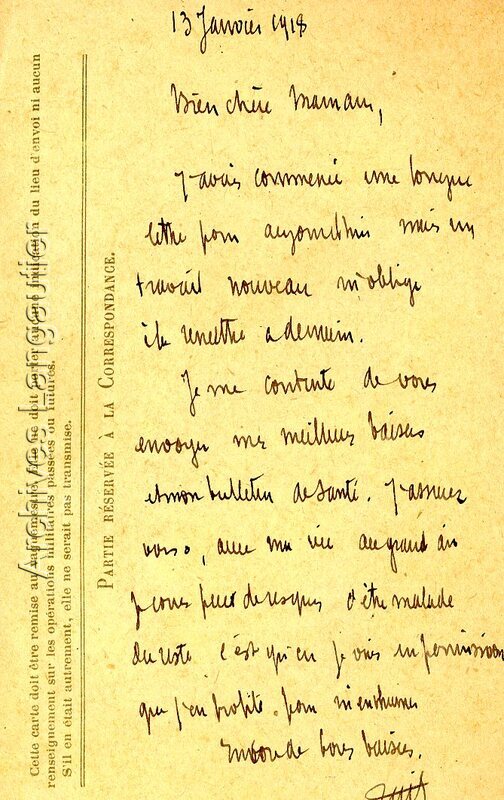 13 Janvier 1918
Bien chère Maman,
J'avais commencé une longue
lettre pour aujourd'hui mais un
travail nouveau m'oblige
à la remettre a demain.
Je me contente de vous
envoyer mes meilleurs baisers
et mon bulletin de Santé.
avec ma vie au grand air
je cours peu de risques d'être malade
du reste c'est qu'en je vais en permission
que j'en profite pour m'enrhumer
de bons baisers.
PARTIE RÉSERVÉE À LA CORRESPONDANCE.
Cette carte doit être remise au vaguemestre. Elle ne doit porter aucune indication du lieu d'envoi ni aucun
renseignement sur les opérations militaires passées ou futures.
S'il en était autrement, elle ne serait pas transmise.
Archives Langoutier